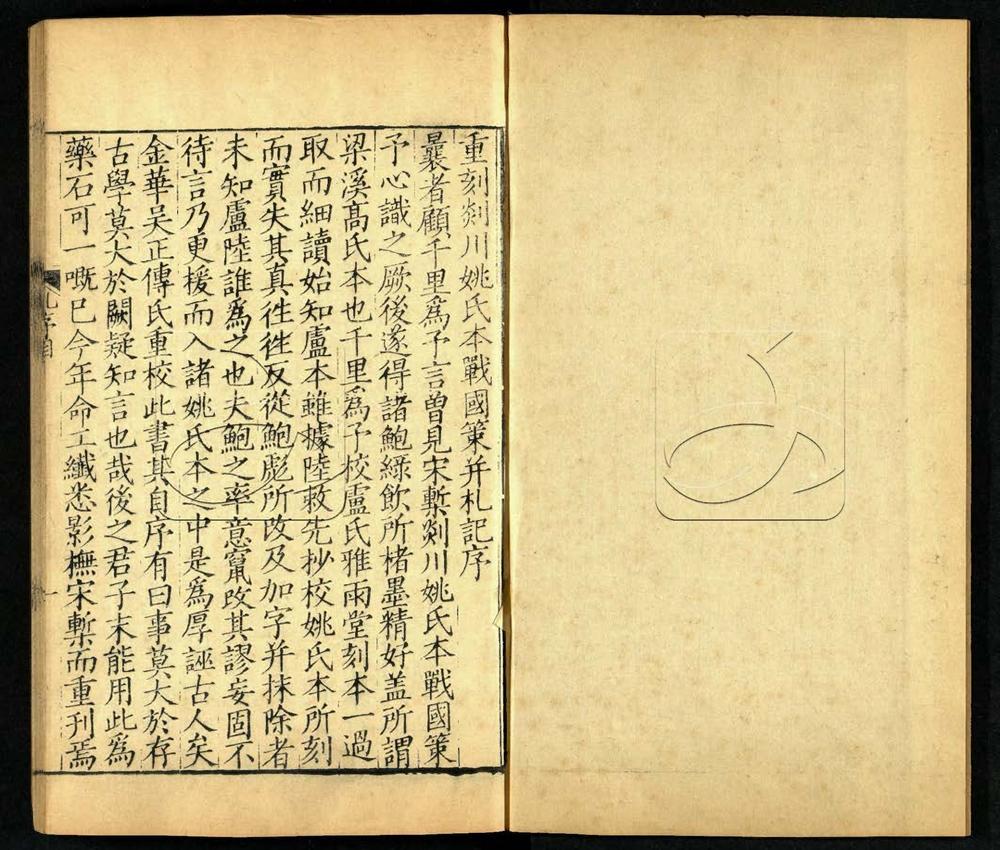 重刻剡川姚氏本戰國策并札記序
曩者顧千里爲予言曾見宋槧剡川姚氏本戰國策
予心識之厥後遂得諸鮑綠飲所楮墨精好盖所謂
梁溪高氏本也千里爲予校盧氏雅雨堂刻本一過
取而細讀始知盧本雖據陸敕先抄校姚氏本所刻
而實失其真徃徃反從鮑彪所改及加字并抹除者
未知盧陸誰爲之也夫鮑之率意竄改其謬妄固不
待言乃更援而入諸姚氏本之中是爲厚誣古人矣
金華吴正傳氏重校此書其自序有曰事莫大於存
古學莫大於闕疑知言也哉後之君子未能用此爲
藥石可一嘅已今年命工纖悉影橅宋槧而重刊焉
札序目
一